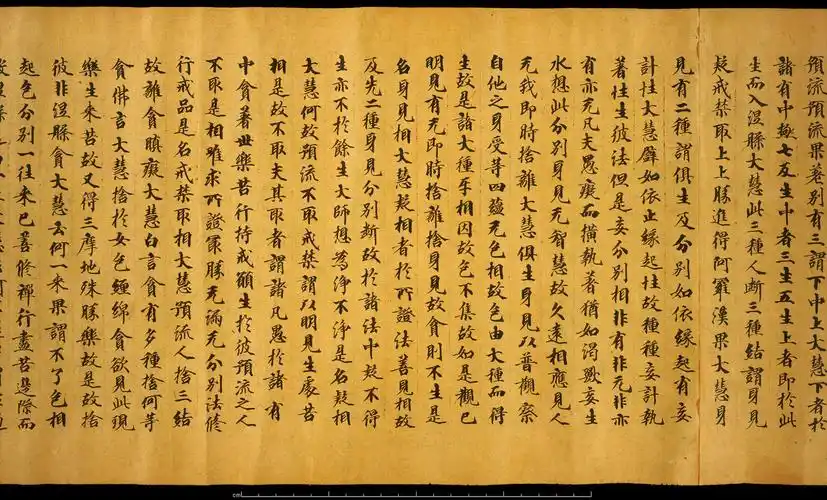 預流預流果差別有三謂下中上大慧下者於
諸有中極七反生中者三生五生上者即於此
生而入涅槃大慧此三種人斷三種結謂身見
疑戒禁取上上勝進得阿羅漢果大慧身
見有二種謂俱生及分別如依緣起有妄
計性大慧譬如依止緣起性故種種妄計執
著性生彼法但是妄分別相非有非无非亦
有亦无凡夫愚癡而橫執著猶如渴獸妄生
水想此分別身見无智慧故久遠相應見人
无我即時捨離大慧俱生身見以普觀察
自他之身受等四蘊无色相故色由大種而得
生故是諸大種互相因故色不集故如是觀已
明見有无即時捨離捨身見故貪則不生是
名身見相大慧疑相者於所證法善見相故
及先二種身見分別斷故於諸法中疑不得
生亦不於餘生大師想為淨不淨是名疑相
大慧何故預流不取戒禁謂以明見生處苦
相是故不取夫其取者謂諸凡愚於諸有
中貪著世樂苦行持戒願生於彼預流之人
不取是相雖求所證最勝无漏无分別法修
行戒品是名戒禁取相大慧預流人捨三結
故離貪瞋癡大慧白言貪有多種捨何等
貪佛言大慧捨於女色纏綿貪欲見此現
樂生來苦故又得三摩地殊勝樂故是故捨
彼非涅槃貪大慧云何一來果謂不了色相
起色分別一往來已善修禪行盡苦邊際而
cm